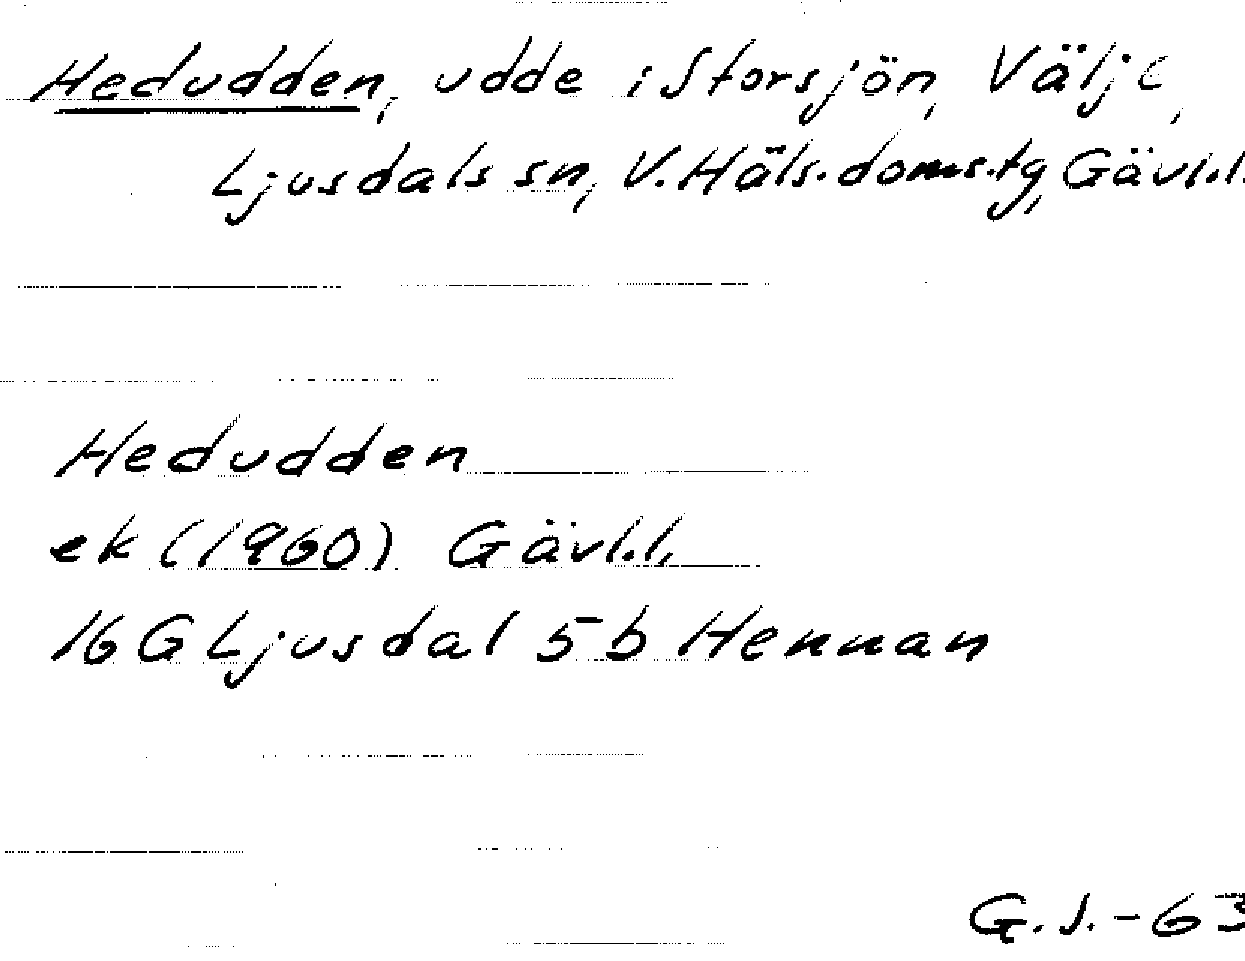 Hedudden, udde i Storsjön, Välje,
Ljusdals sn, V. Häls. doms.tg, Gävl.l.
Hedudden
ek (1960) Gävl.l.
16 G Ljusdal 5 b Hennan
G.J.-63